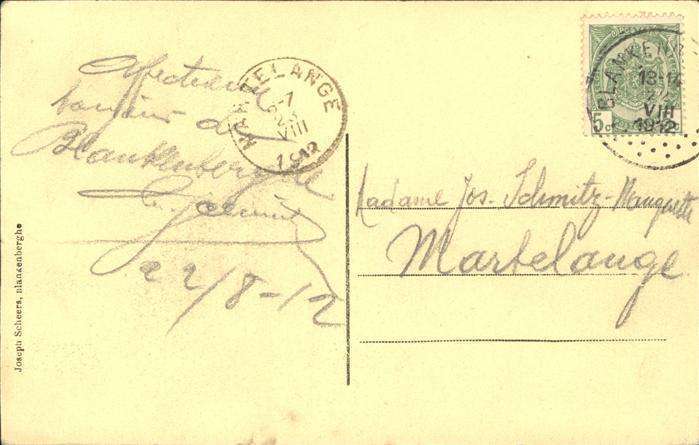 Affectueux
bonjour de
Blankenberghe
22/8-12
MARTELANGE
6-7
23
VIII
1912
BLANKENB
18-14
VIII
1912
5c
Madame Jos. Schmitz-Manguette
Martelange
Joseph Scheers, Blankenberghe